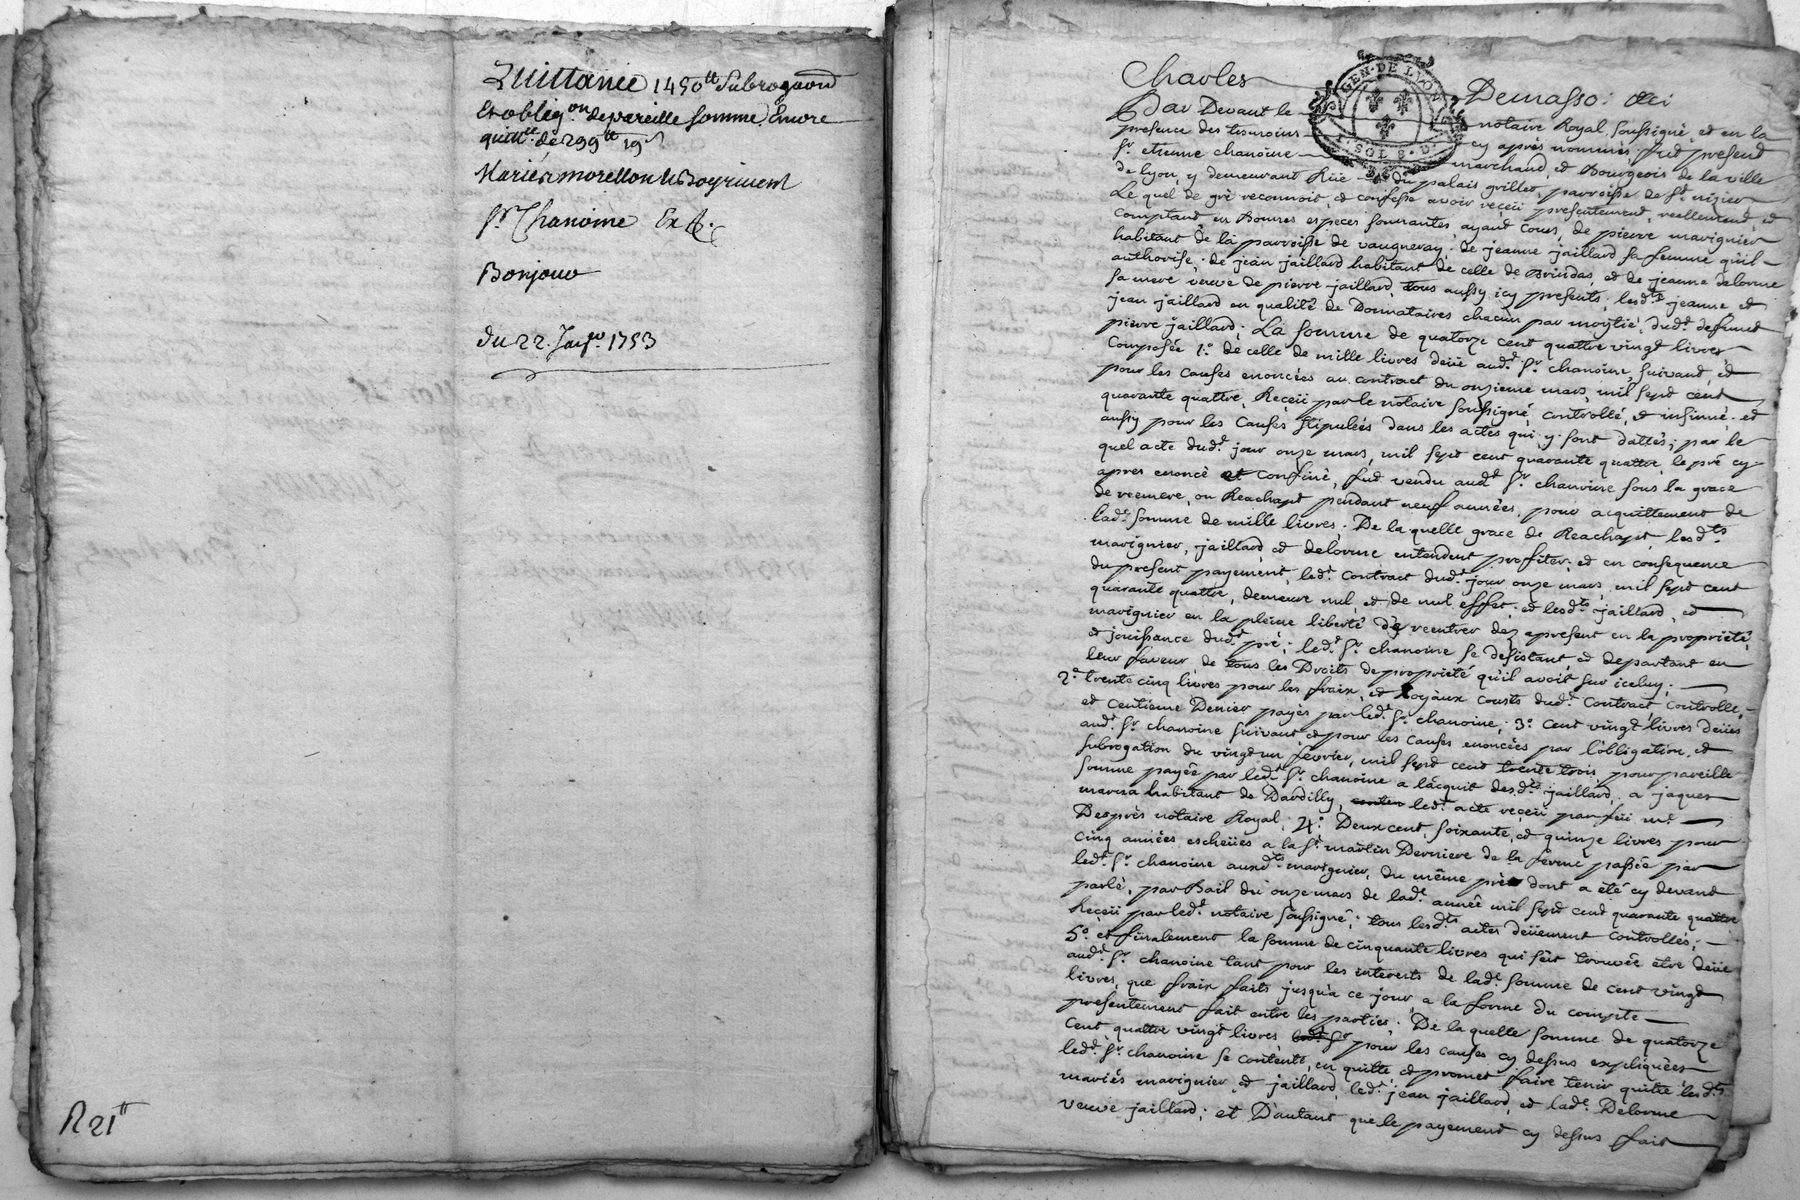 Quittance 1450ᵗᵗ Subrogaõn
Et oblig.ᵒⁿ de pareille somme Encore
quitt.ᶜᵉ de 299ᵗᵗ 19ˢ
Mariés morellon & Boyriuent
Sʳ. Chanoine Ex A.
Bonjour
du 22. Janv.ᵉʳ 1753
R 21ᵗᵗ
Charles Demasso: &ci
GEN. DE LYON
SOL 8. D.
Par Devant le notaire Royal, soussigné et en la
presence des tesmoins cy après nommés: fut present
Sʳ. etienne chanoine marchand, et Bourgeois de la ville
de lyon, y demeurant Rüe du palais grillet, parroisse de Sᵗ. nizier
Le quel de gré reconnoit, et confesse avoir receü presentement, reellement, et
Comptant en Bonnes especes sonnantes, ayant cours, de pierre marignier
habitant de la parroisse de vaugneray; de jeanne jaillard sa femme qu'il
authorise; de jean jaillard habitant de celle de Brindas, et de jeanne delorme
sa mere veuve de pierre jaillard, tous aussy icy presents; lesd.ᵗˢ jeanne et
jean jaillard en qualité de Donnataires chacun par moytié, dud.ᵗ defunct
pierre jaillard; La somme de quatorze cent quattre vingt livres,
Composée 1.º de celle de mille livres deüe aud.ᵗ Sʳ. chanoine, suivant, et
pour les causes enoncées au contract du onzieme mars, mil sept cent
quarante quattre, Receü par le notaire soussigné, controllé, et insinué; et
aussy pour les Causes stipulées dans les actes qui y sont dattés; par le
quel acte dud.ᵗ jour onze mars, mil sept cent quarante quattre, le pré cy
apres enoncé et confiné, fut vendu aud.ᵗ Sʳ. chanoine sous la grace
de reemere, ou Reachapt pendant neuf années, pour acquittement de
lad.ᵉ somme de mille livres; De la quelle grace de Reachapt, lesd.ᵗˢ
marignier, jaillard et delorme entendent profiter; et en consequence
du present payement, led.ᵗ Contract dud.ᵗ jour onze mars, mil sept cent
quarante quattre, demeure nul, et de nul effet; et lesd.ᵗˢ jaillard, et
marignier en la pleine liberté de reentrer dez apresent en la propriété,
et jouissance dud.ᵗ pré; led.ᵗ Sʳ. chanoine se desistant et departant en
leur faveur de tous les Droits de propriété qu'il avoit sur iceluy;
2.º trente cinq livres pour les fraix, et Loyaux cousts dud.ᵗ Contract, Controlle,
et Centieme Denier payés par led.ᵗ Sʳ. chanoine; 3.º Cent vingt livres deües
aud.ᵗ Sʳ. chanoine suivant, et pour les causes enoncées par l'obligation, et
subrogation du vingt un fevrier, mil sept cent trente trois, pour pareille
somme payée par led.ᵗ Sʳ. chanoine a l'acquit desd.ᵗˢ jaillard, a jaques
habitant de Dardilly, led.ᵗ acte receü par feü mᵉ.
Desprès notaire Royal; 4.º Deux cent, soixante, et quinze livres pour
cinq années escheües a la Sᵗ. martin Derniere de la ferme passée par
led.ᵗ Sʳ. chanoine auxd.ᵗˢ marignier, du même pré dont a été cy devant
parlé, par Bail du onze mars de lad.ᵉ année mil sept cent quarante quattre
Receü par led.ᵗ notaire soussigné; tous lesd.ᵗˢ actes deüement controllés;
5.º et finalement la somme de cinquante livres qui s'est trouvée etre deüe
aud.ᵗ Sʳ. chanoine tant pour les interests de lad.ᵉ somme de cent vingt
livres, que fraix faits jusqu'a ce jour, a la forme du compte
presentement fait entre les parties; De la quelle somme de quatorze
cent quattre vingt livres pour les causes cy dessus expliquées
led.ᵗ Sʳ. chanoine se contente, en quitte et promet faire tenir quitte lesd.ᵗˢ
mariés marignier, et jaillard, led.ᵗ jean jaillard, et lad.ᵉ Delorme
veuve jaillard; et D'autant que le payement cy dessus fait